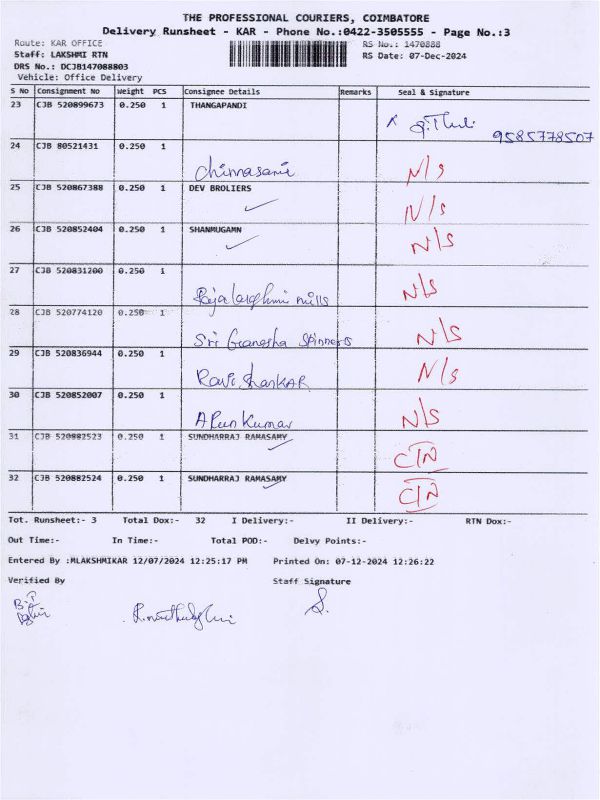 THE PROFESSIONAL COURIERS, COIMBATORE
Delivery Runsheet - KAR - Phone No.:0422-3505555 - Page No.:3
Route: KAR OFFICE RS No.: 1470888
Staff: LAKSHMI RTN RS Date: 07-Dec-2024
DRS No.: DCJB147088803
Vehicle: Office Delivery
S No Consignment No Weight PCS Consignee Details Remarks Seal & Signature
23 CJB 520899673 0.250 1 THANGAPANDI
9585778507
24 CJB 80521431 0.250 1
Chinnasami N/S
25 CJB 520867388 0.250 1 DEV BROLIERS
N/S
26 CJB 520852404 0.250 1 SHANMUGAMN
N/S
27 CJB 520831200 0.250 1
Mills N/S
28 CJB 520774120 0.250 1
Sri Ganesha Spinners N/S
29 CJB 520836944 0.250 1
Ravi ShanKAR N/S
30 CJB 520852007 0.250 1
ARun Kumar N/S
31 CJB 520882523 0.250 1 SUNDHARRAJ RAMASAMY
C/N
32 CJB 520882524 0.250 1 SUNDHARRAJ RAMASAMY
C/N
Tot. Runsheet:- 3 Total Dox:- 32 I Delivery:- II Delivery:- RTN Dox:-
Out Time:- In Time:- Total POD:- Delvy Points:-
Entered By :MLAKSHMIKAR 12/07/2024 12:25:17 PM Printed On: 07-12-2024 12:26:22
Verified By Staff Signature